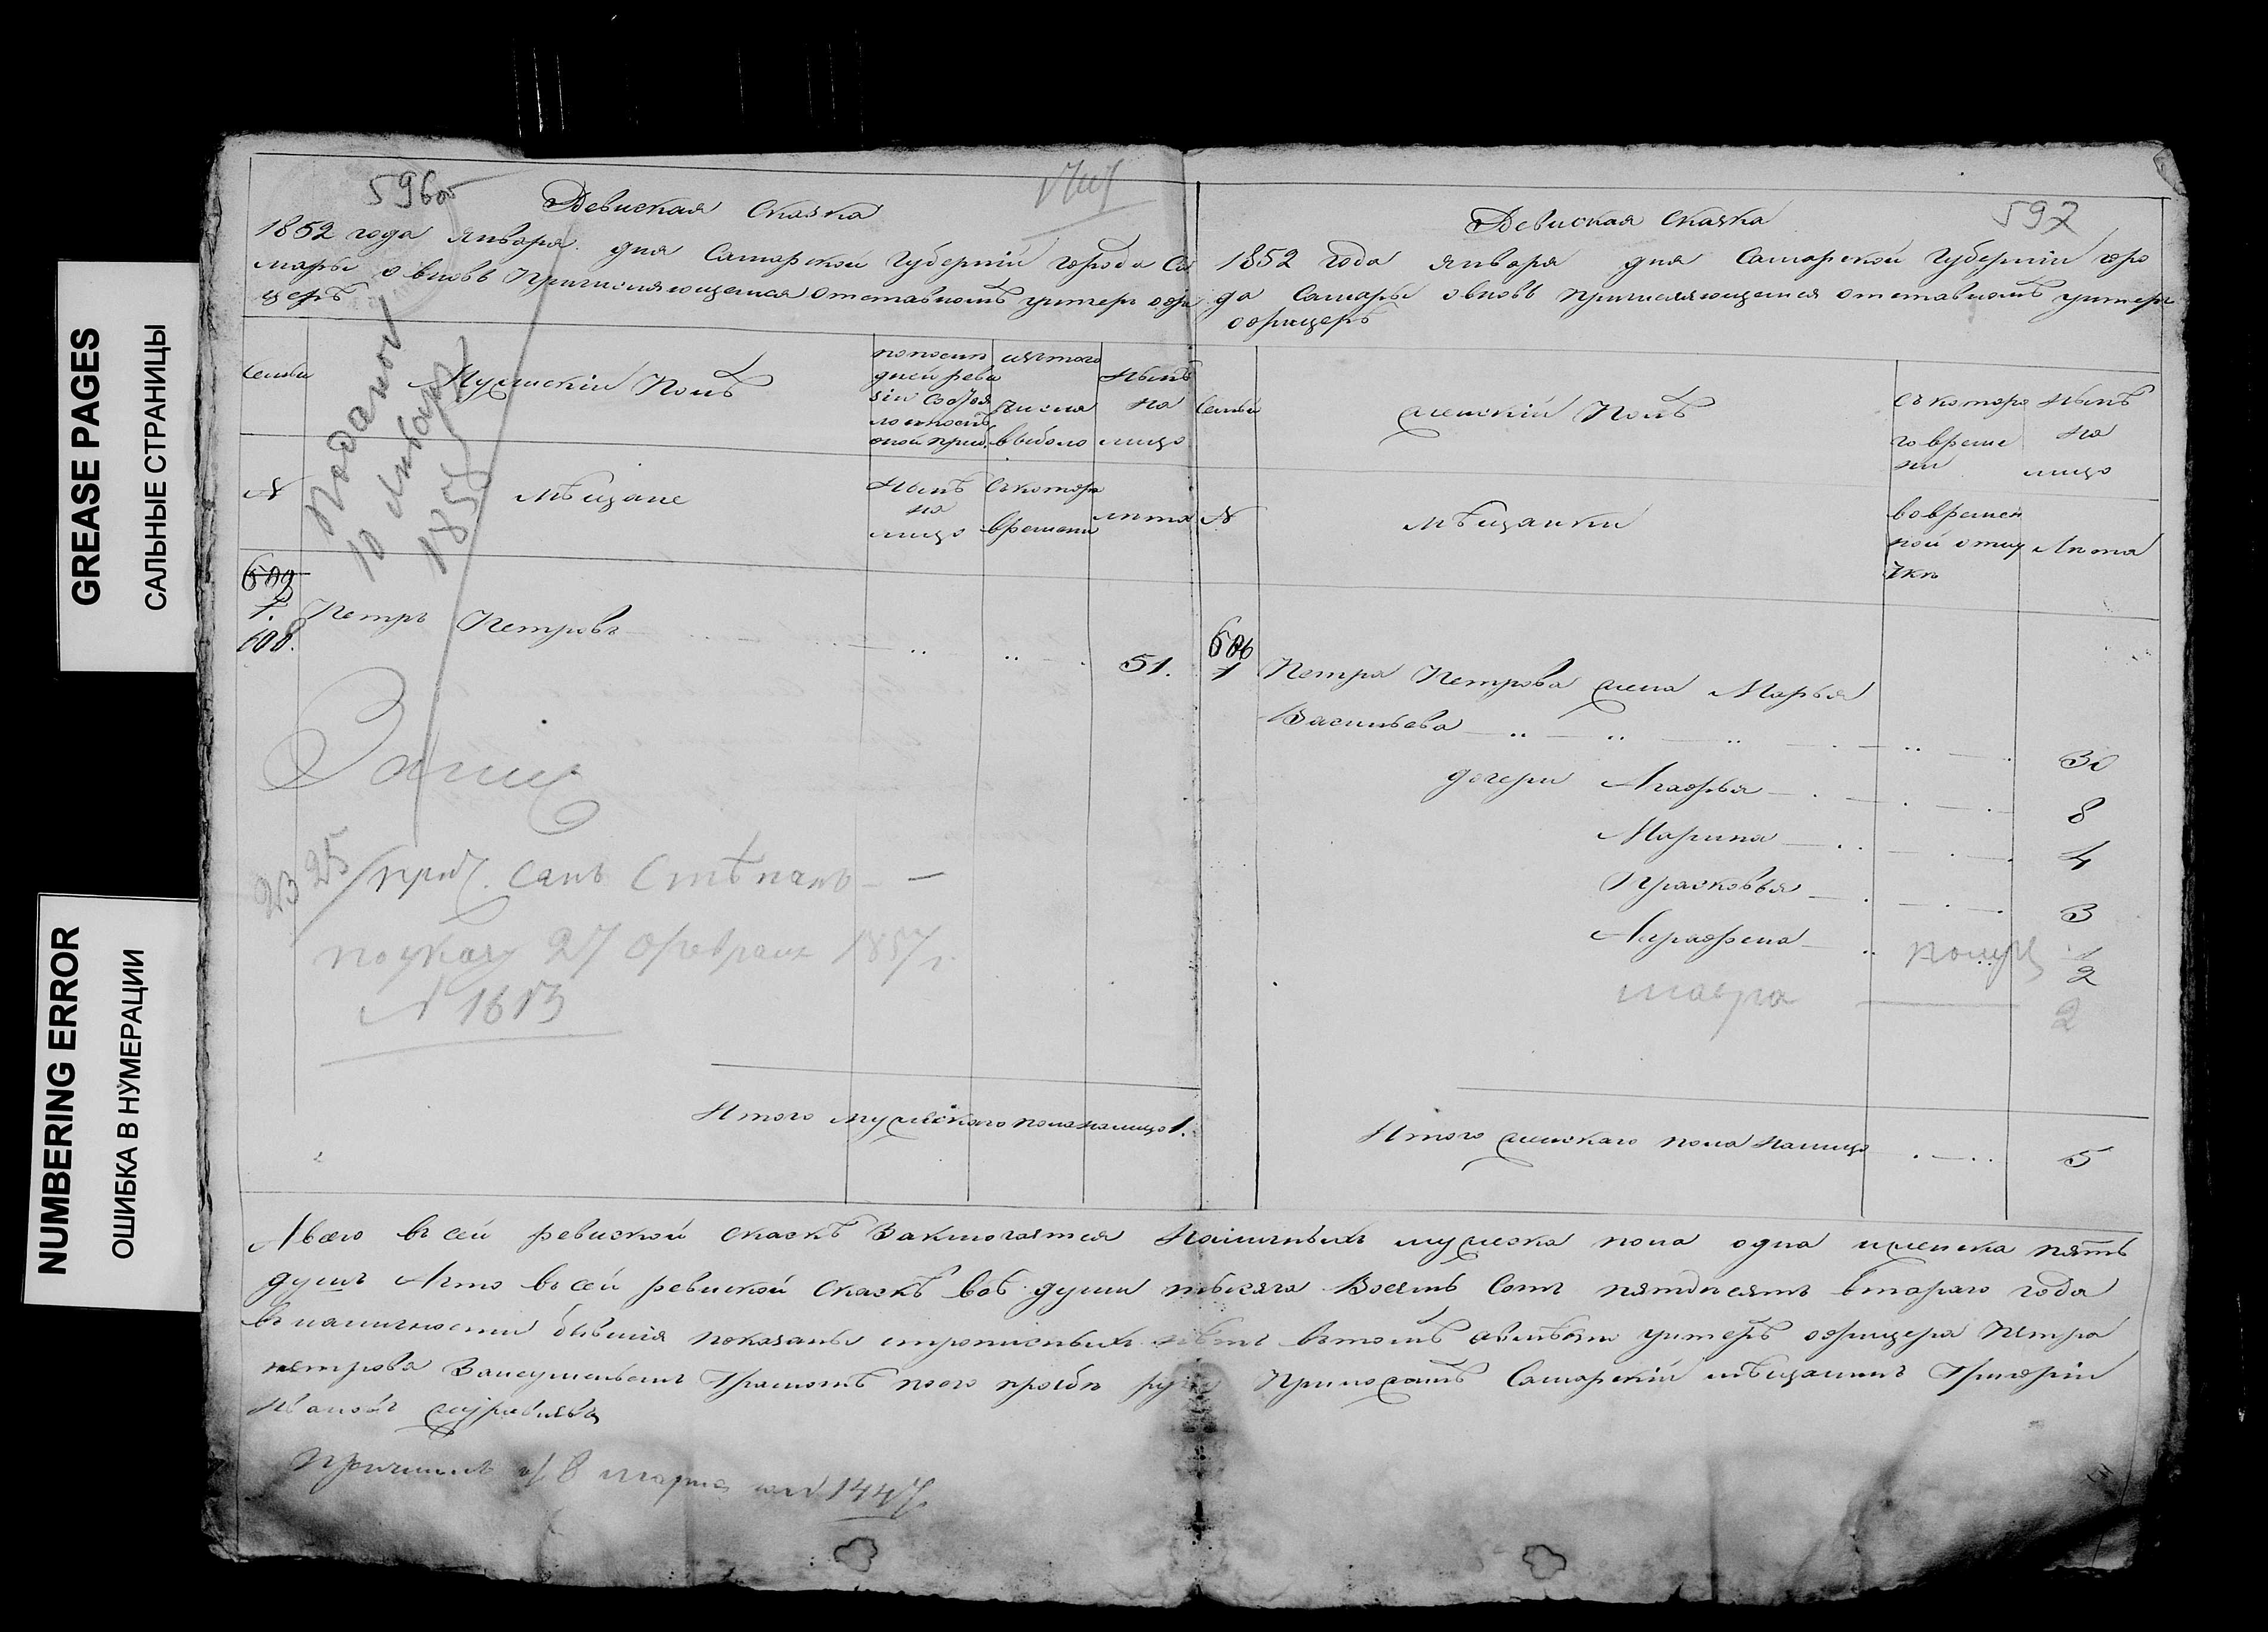 GREASE PAGES
САЛЬНЫЕ СТРАНИЦЫ
NUMBERING ERROR
ОШИБКА В НУМЕРАЦИИ
596об
Ревиская Сказка
1852 года Января дня Самарской Губерніи города Са
мары о вновь Причисляющемся Отставномъ унтеръ офи
церѣ
Поданой
10 Января
185
Семьи
Мужескій Полъ
по послѣ
дней реви
зіи состоя
изъ того
числа
выбыло
Нынѣ
на
лицо
№
Мѣщане
Нынѣ
на
лицо
Съ котора
времени
Лѣта
609
1.
608.
Петръ Петровъ
51.
23 25
прич. сынъ Степанъ
по указу 27 февраля 1857 г.
№ 1613
Итого мужескаго пола налицо 1.
597
Ревиская Сказка
1852 года Января дня Самарской Губерніи горо
да Самары о вновь Причисляющемся Отставномъ унтеръ
офицерѣ
Семьи
Женскій Полъ
съ которо
го време
ни
Нынѣ
на
лицо
№
Мѣщанки
во времен
ной отлу
чкѣ
Лѣта
606
1
Петра Петрова жена Марья
Васильева 30
дочери Агафья 8
Марина 4
Прасковья 3
Аграфена 2
Мавра 2
Итого женскаго пола налицо 5
А всего въ сей ревиской сказкѣ Заключается Наличныхъ мужеска пола одна и женска пять
душъ А что въ сей ревиской Сказкѣ всѣ души тысяча Восемь Сотъ пятдесятъ втараго года
въ наличности бывшія показаны и прописныхъ нѣтъ въ томъ унтеръ офицера Петра
Петрова За неуменьемъ Грамотѣ по его прозбѣ руку Приложилъ Самарскій мѣщанинъ Григорій
Ивановъ
Причисленъ 8 марта 1447.